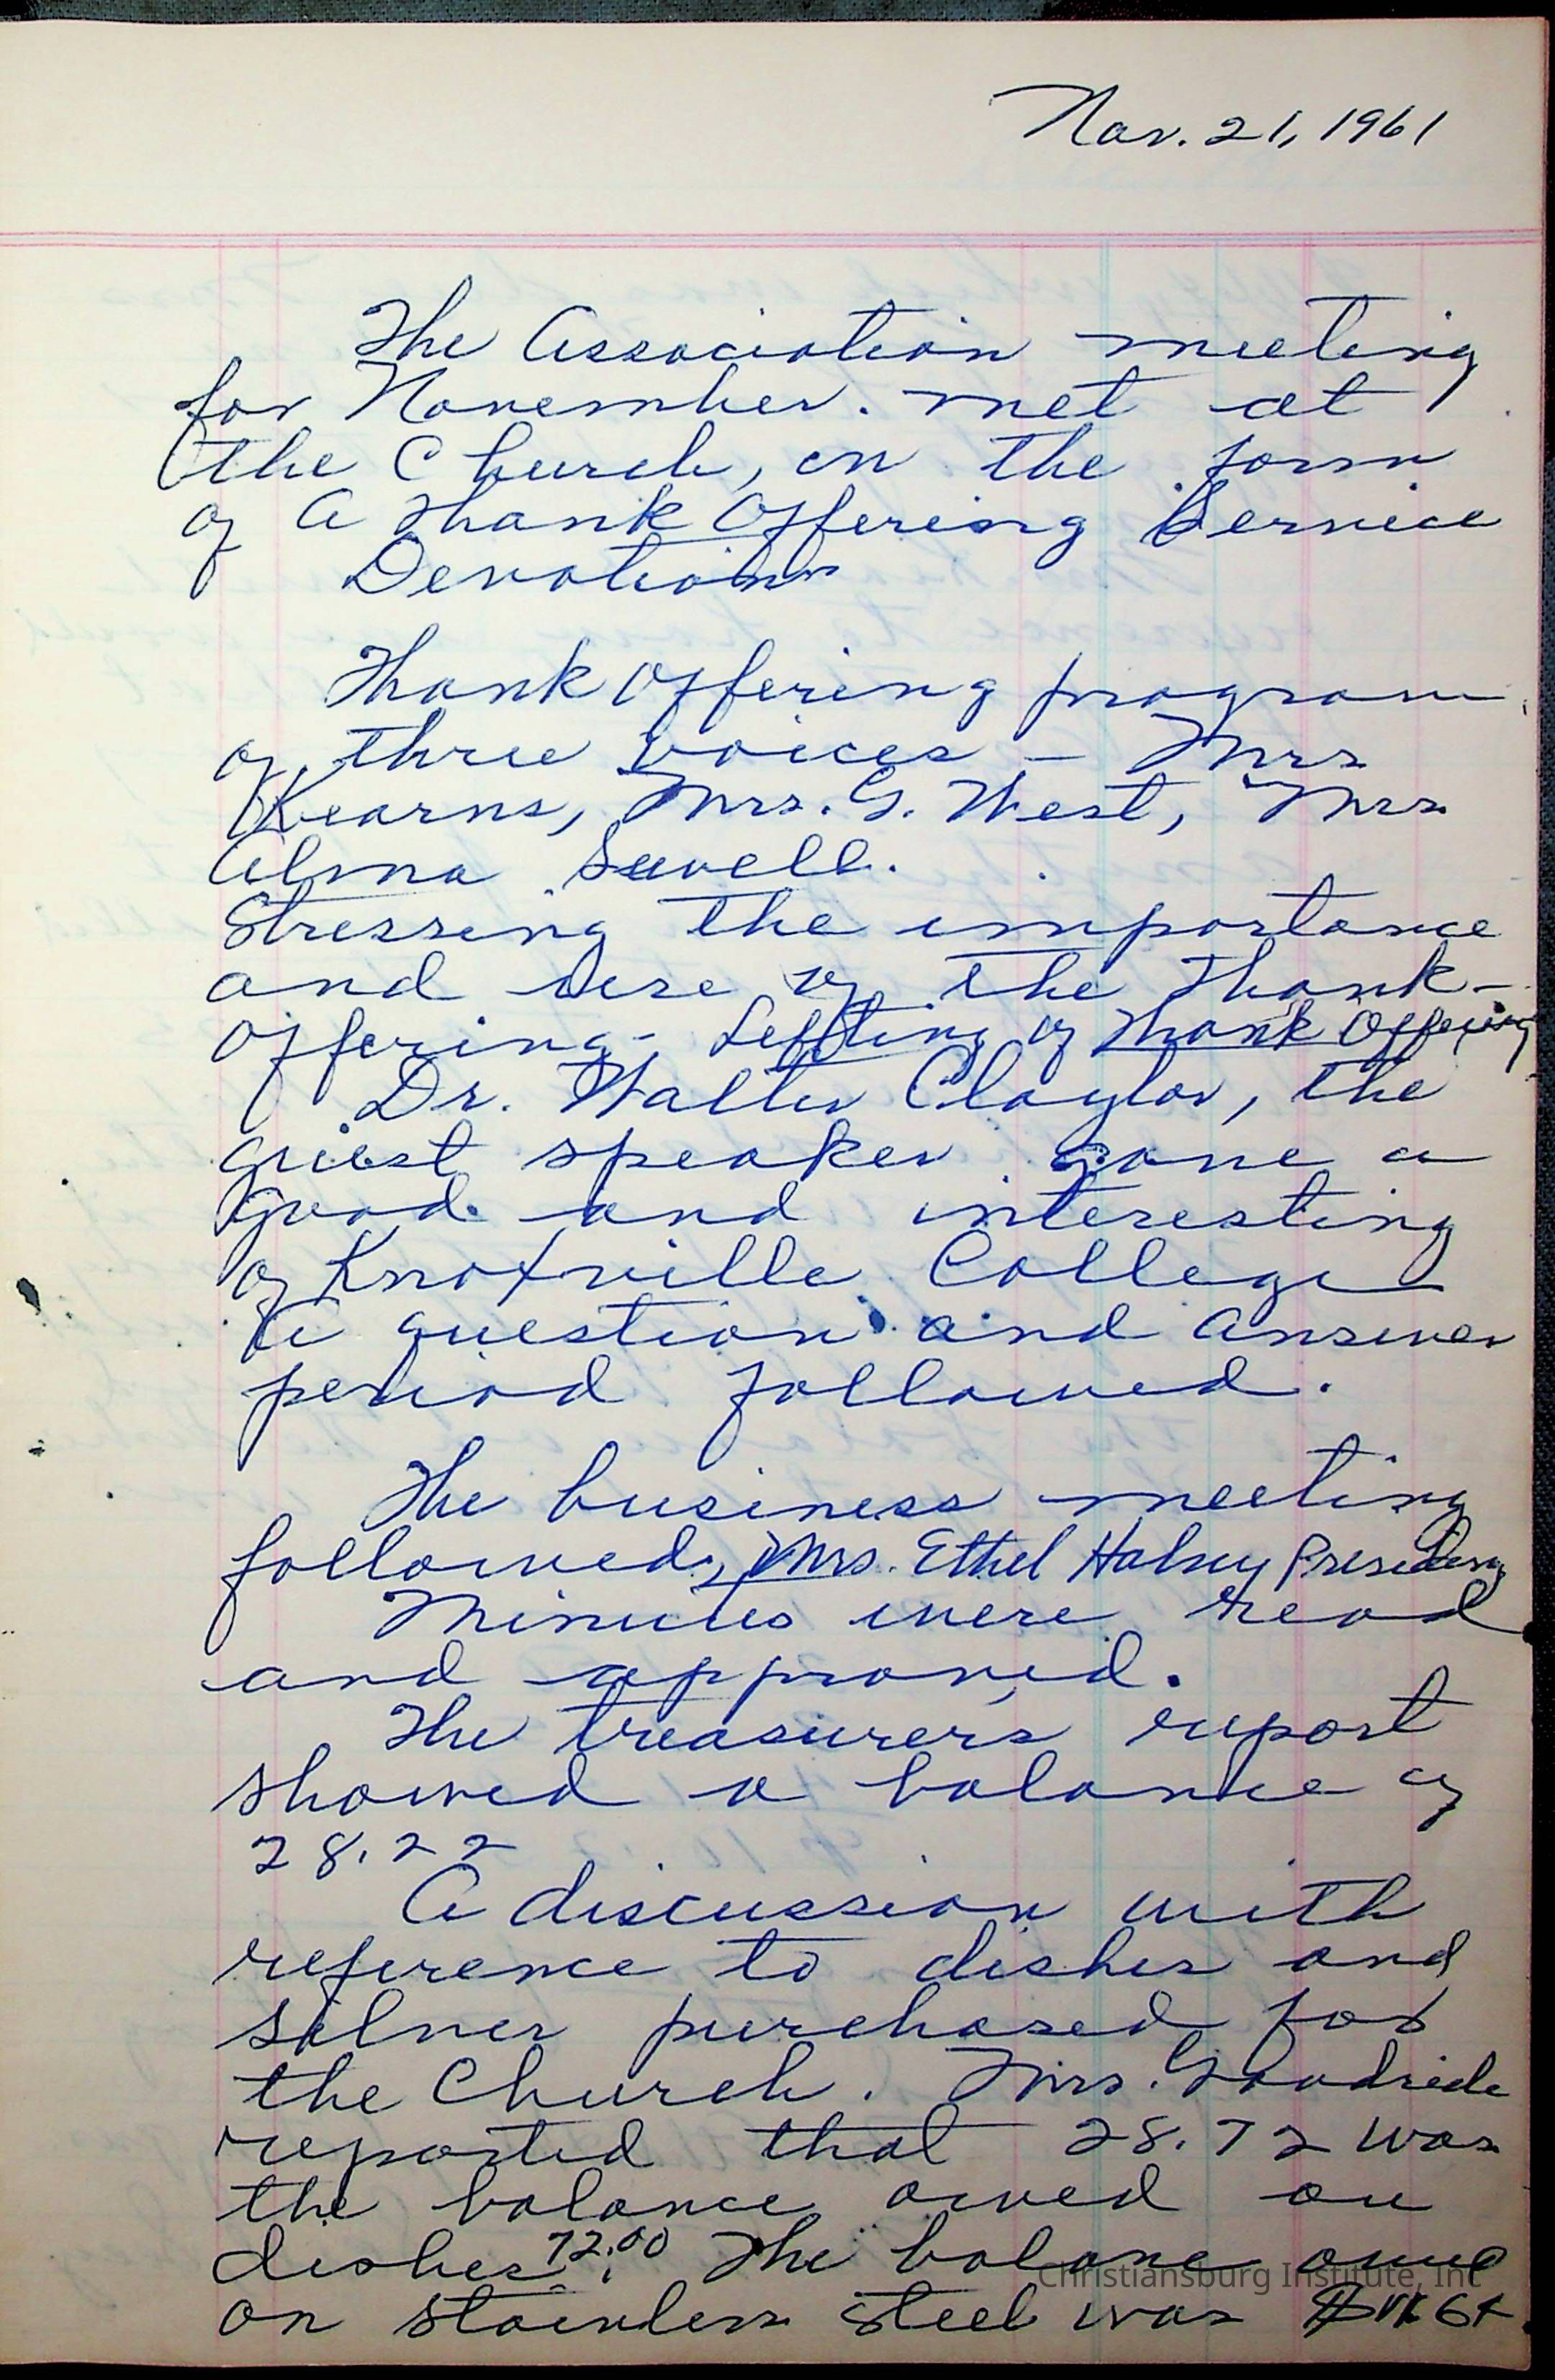 Nov. 21, 1961
The Association meeting
for November. met at
the Church, in the form
of a Thank Offering Service
Devotions
Thank Offering program
of three voices - Mrs
Kearns, Mrs. G. West, Mrs
Alma Sewell.
Stressing the importance
and use of the Thank-
offering - Lifting of Thank Offering
Dr. Walter Claytor, the
guest speaker gave a
good and interesting
of Knoxville College
A question and answer
period followed.
The business meeting
followed, Mrs. Ethel Halsey Presiding
Minutes were read
and approved.
The treasurers report
showed a balance of
28.22
A discussion with
reference to dishes and
silver purchased for
the Church. Mrs.
reported that 28.72 was
the balance owed on
dishes 72.00. The balance owed
on stainless steel was
Christiansburg Institute, Inc